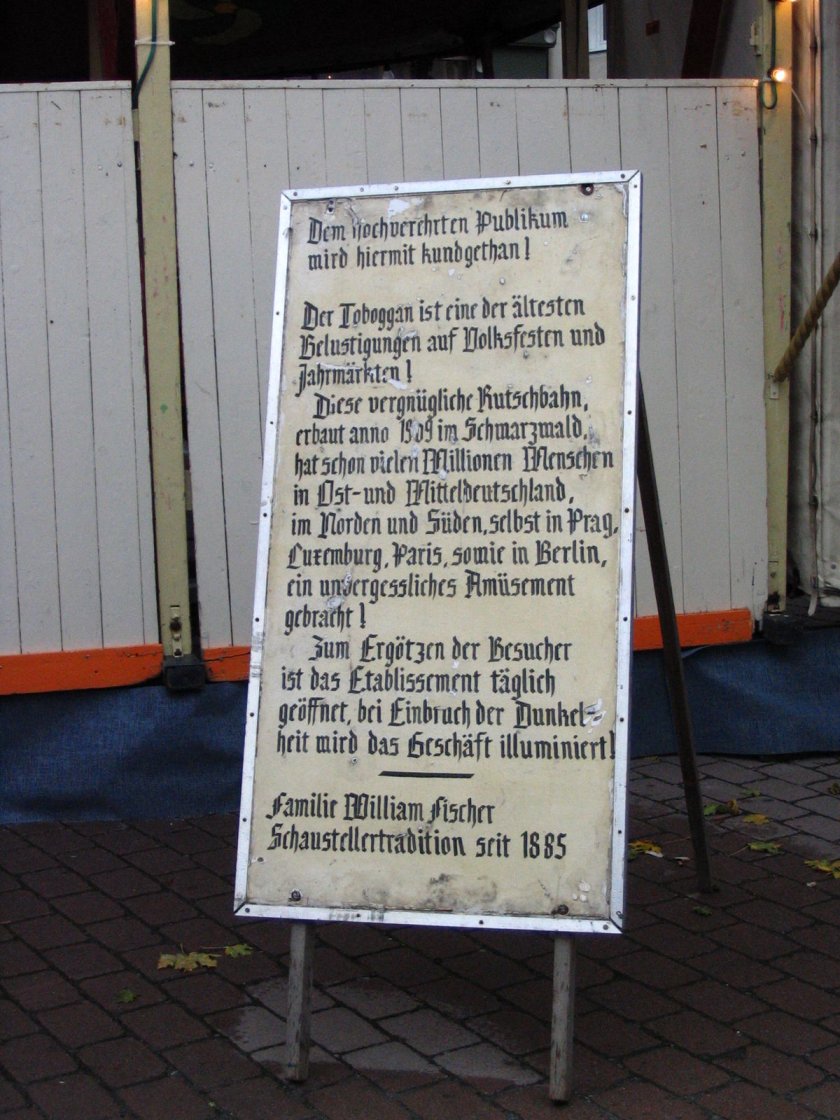 Dem hochverehrten Publikum
wird hiermit kundgethan!
Der Toboggan ist eine der ältesten
Belustigungen auf Volksfesten und
Jahrmärkten!
Diese vergnügliche Rutschbahn,
erbaut anno 1909 im Schwarzwald,
hat schon vielen Millionen Menschen
in Ost-und Mitteldeutschland,
im Norden und Süden, selbst in Prag,
Luxemburg, Paris, sowie in Berlin,
ein unvergessliches Amüsement
gebracht!
Zum Ergötzen der Besucher
ist das Etablissement täglich
geöffnet, bei Einbruch der Dunkel-
heit wird das Geschäft illuminiert!
Familie William Fischer
Schaustellertradition seit 1885